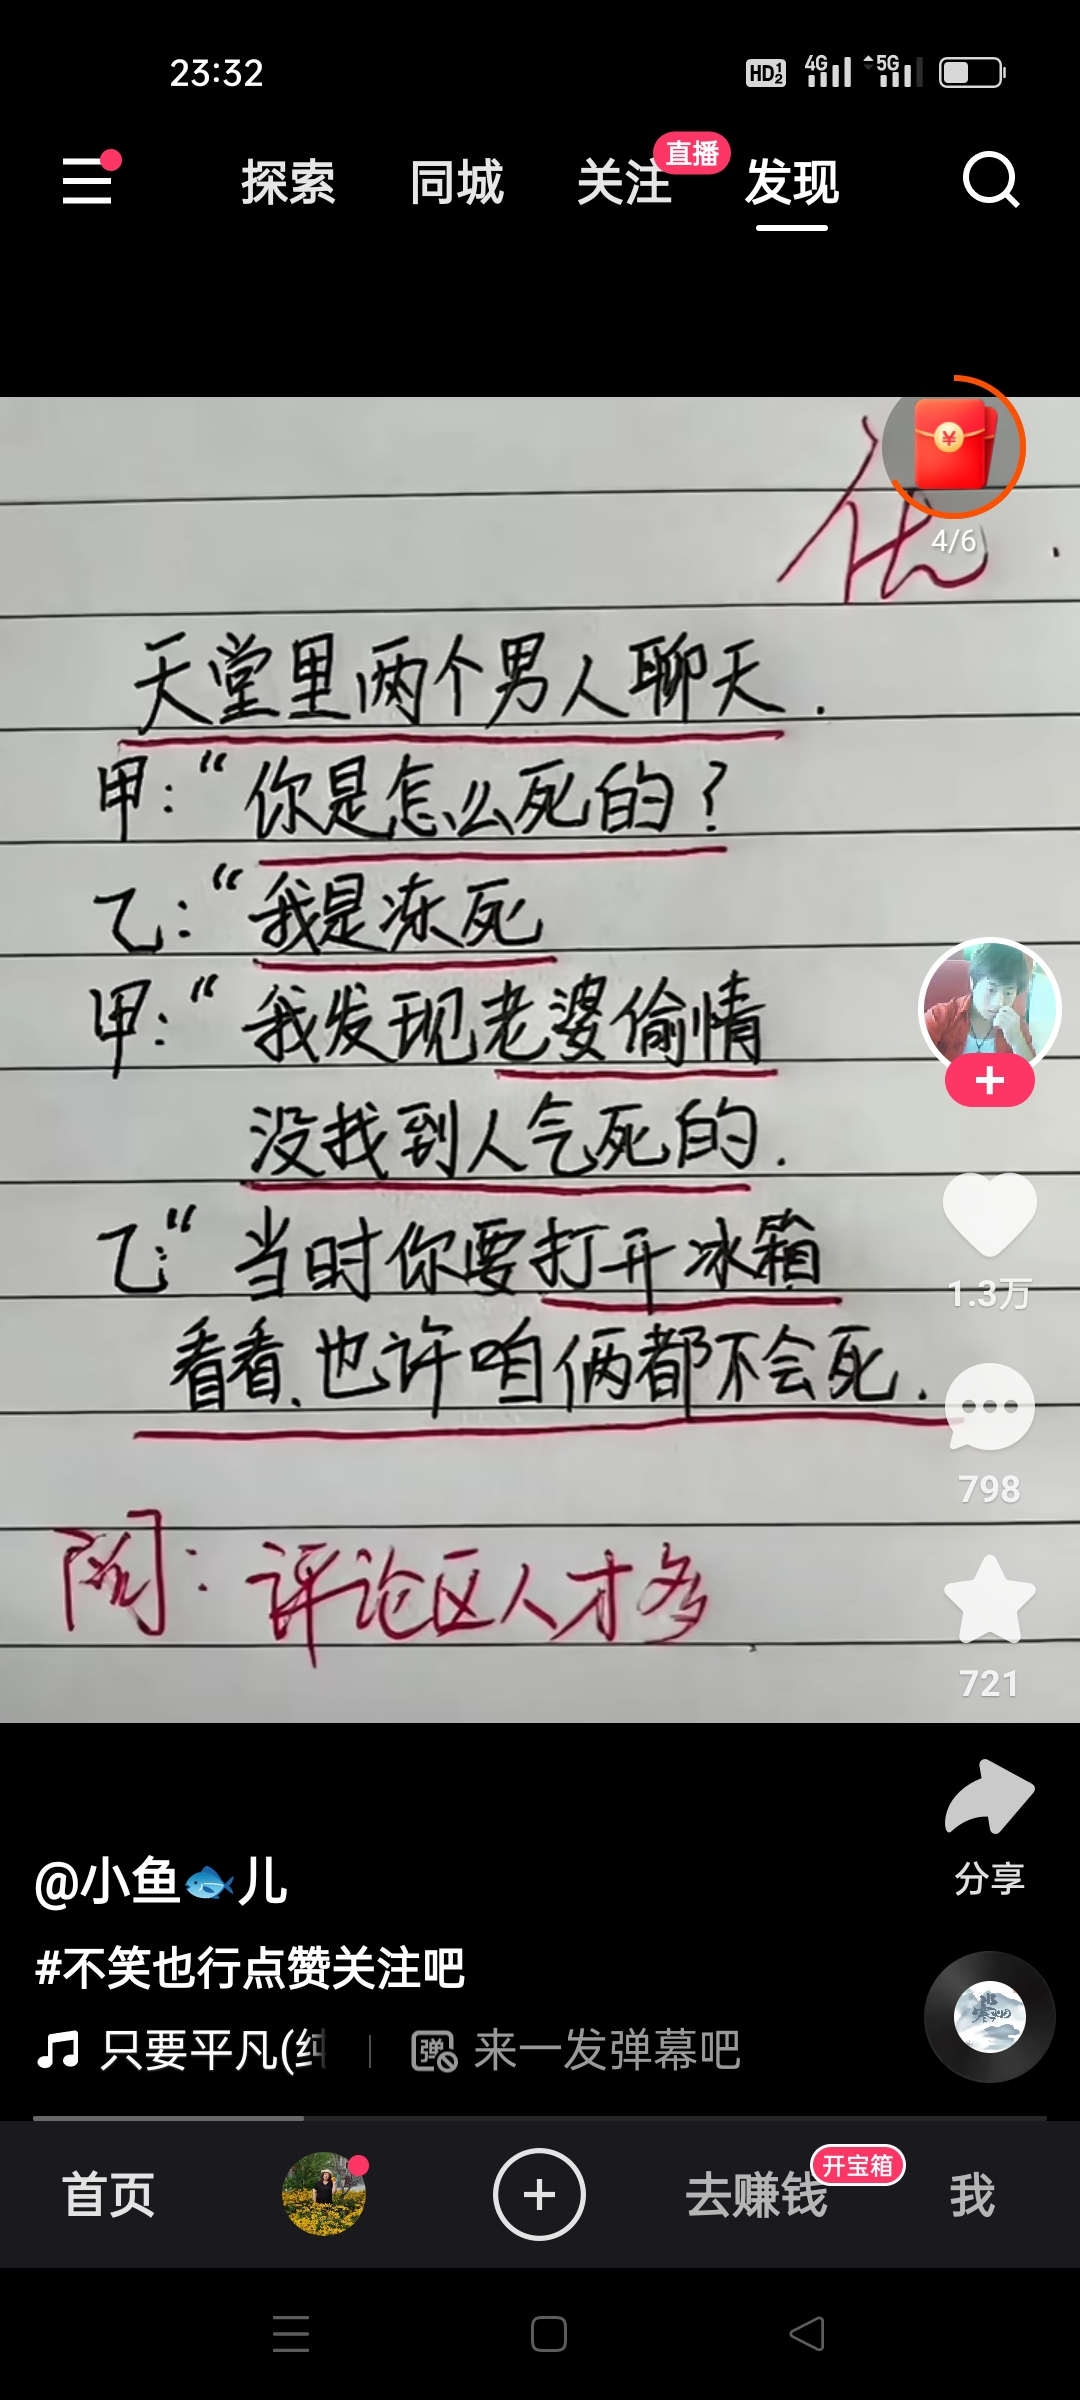 23:32
HD 1 2 4G 5G
探索 同城 关注 直播 发现
4/6
优
天堂里两个男人聊天.
甲:“你是怎么死的?
乙:“我是冻死
甲:“我发现老婆偷情
没找到人气死的.
乙:“当时你要打开冰箱
看看.也许咱俩都不会死.
阅:评论区人才多
1.3万
798
721
分享
@小鱼🐟儿
#不笑也行点赞关注吧
只要平凡(纯 弹 来一发弹幕吧
首页 去赚钱 开宝箱 我